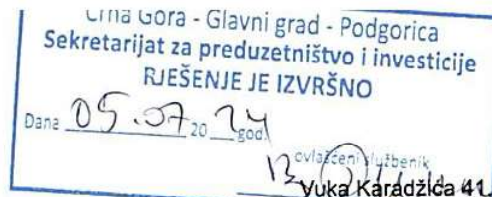 Crna Gora - Glavni grad - Podgorica
Sekretarijat za preduzetništvo i investicije
RJEŠENJE JE IZVRŠNO
Dana 05.07 20 24 god.
ovlašćeni službenik
Vuka Karadžića 41,